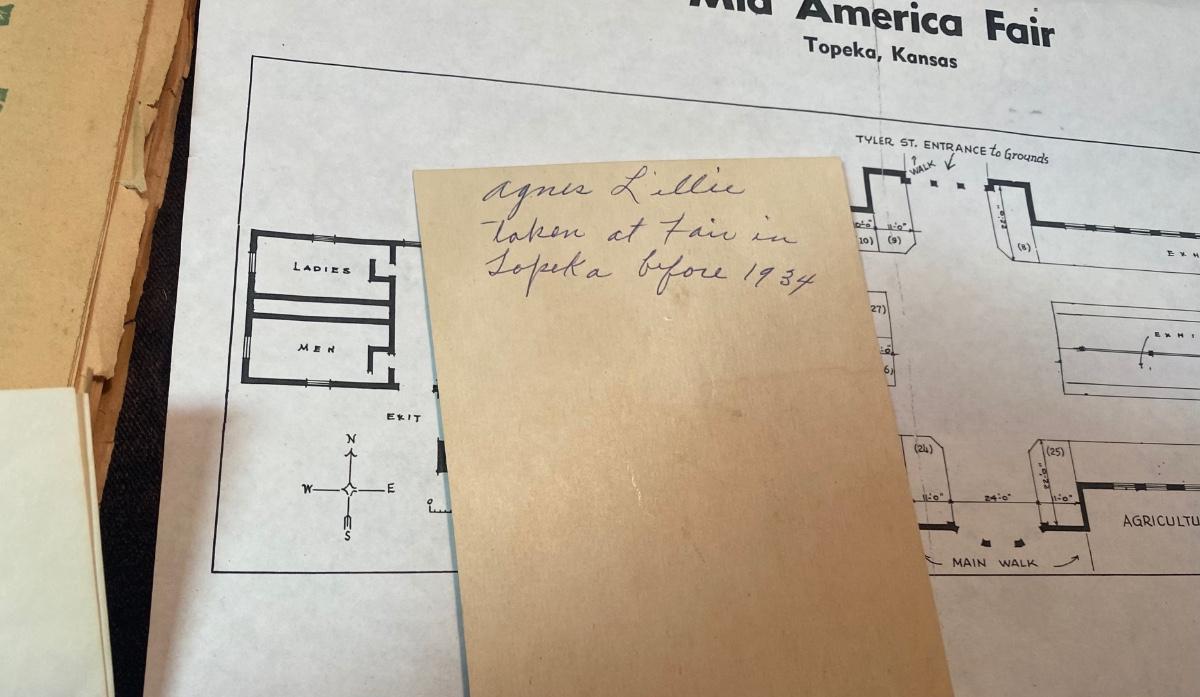 Mid America Fair
Topeka, Kansas
TYLER ST. ENTRANCE to Grounds
WALK
agnes Lillie
taken at Fair in
Topeka before 1934
LADIES
MEN
EXIT
N
W E
S
10) (9)
11'-0"
22'-0"
(8)
27)
6)
(24)
(25)
11'-0" 24'-0"
22'-0"
MAIN WALK